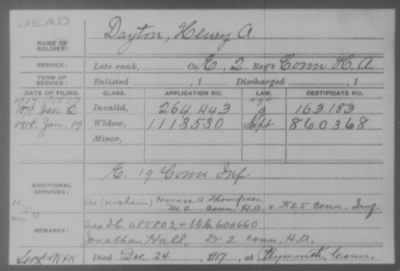 DEAD
NAME OF SOLDIER: Dayton, Henry A.
SERVICE: Late rank, Co. E, 2 Reg't Conn H.A.
TERM OF SERVICE: Enlisted , 1 Discharged , 1
DATE OF FILING. CLASS. APPLICATION NO. LAW. CERTIFICATE NO.
Invalid, 264.443 163183
1918. Jan. 19 Widow, 1118530 Sept 860368
Minor,
ADDITIONAL SERVICES: E. 19 Conn Inf.
Horace A. Thompson
2 Conn. H.A. & K 25 Conn. Inf.
REMARKS: See
Jonathan Hall, D 2 Conn. H.A.
Died Dec. 24, 1917, at Plymouth, Conn.